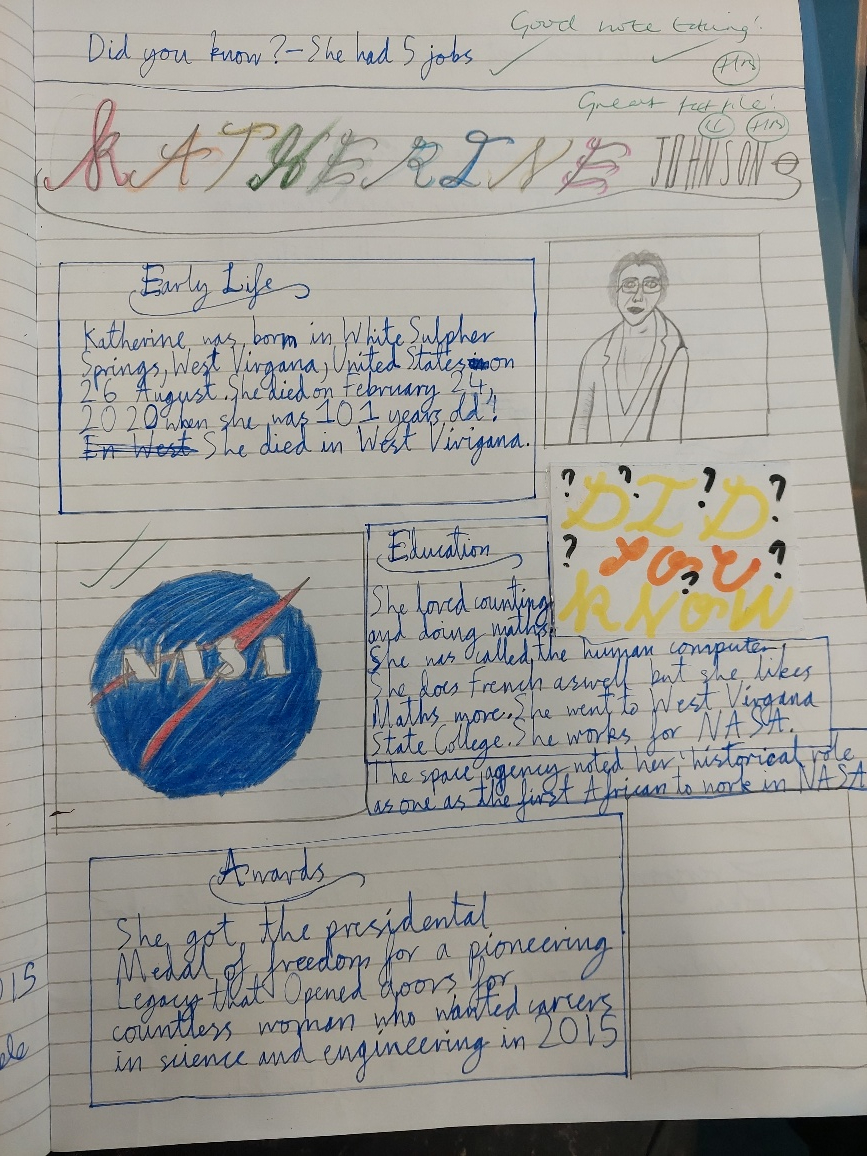 Good note taking!
Did you know?-She had 5 jobs
Great fact file!
KATHERINE JOHNSON
Early Life
Katherine was born in White Sulpher
Springs, West Virgana, United States on
26 August. She died on February 24,
2020 when she was 101 years old!
En West She died in West Virigana.
? ? ? ?
DID
? YOU ?
?
KNOW
NASA
Education
She loved counting
and doing maths.
She was called the human computer
She does French aswell but she likes
Maths more. She went to West Virgana
State College. She works for NASA.
The space agency noted her historical role
as one as the first African to work in NASA
Awards
She got the presidental
Medal of freedom for a pioneering
Legacy that Opened doors for
countless woman who wanted careers
in science and engineering in 2015
015